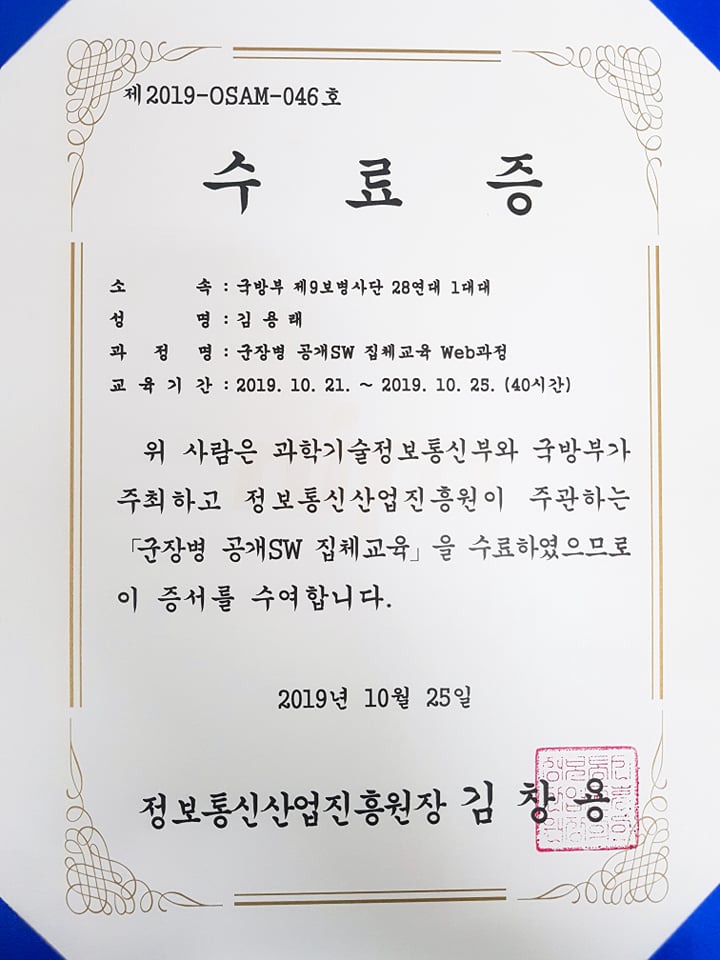 제2019-OSAM-046호
수 료 증
소 속 : 국방부 제9보병사단 28연대 1대대
성 명 : 김 용 래
과 정 명 : 군장병 공개SW 집체교육 Web과정
교 육 기 간 : 2019. 10. 21. ~ 2019. 10. 25. (40시간)
위 사람은 과학기술정보통신부와 국방부가
주최하고 정보통신산업진흥원이 주관하는
「군장병 공개SW 집체교육」을 수료하였으므로
이 증서를 수여합니다.
2019년 10월 25일
정보통신산업진흥원장 김 창 용